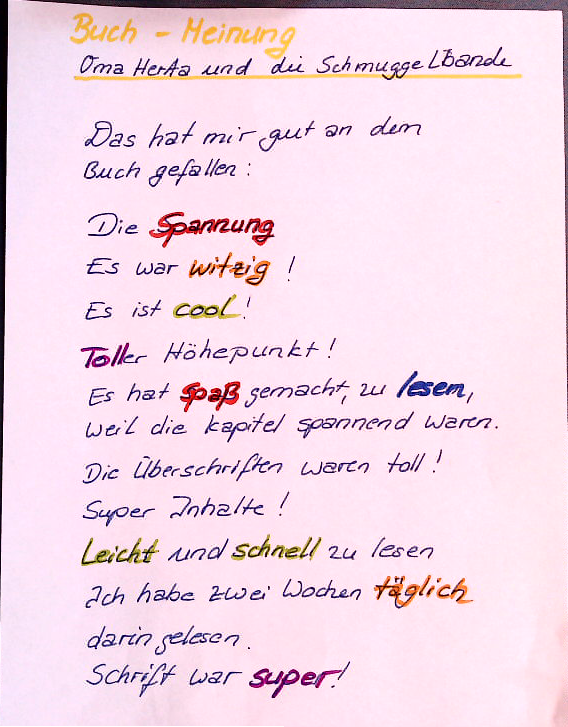 Buch - Meinung
Oma Herta und die Schmuggelbande
Das hat mir gut an dem
Buch gefallen:
Die Spannung
Es war witzig!
Es ist cool!
Toller Höhepunkt!
Es hat Spaß gemacht, zu lesem,
weil die kapitel spannend waren.
Die Überschriften waren toll!
Super Inhalte!
Leicht und schnell zu lesen
Ich habe zwei Wochen täglich
darin gelesen.
Schrift war super!